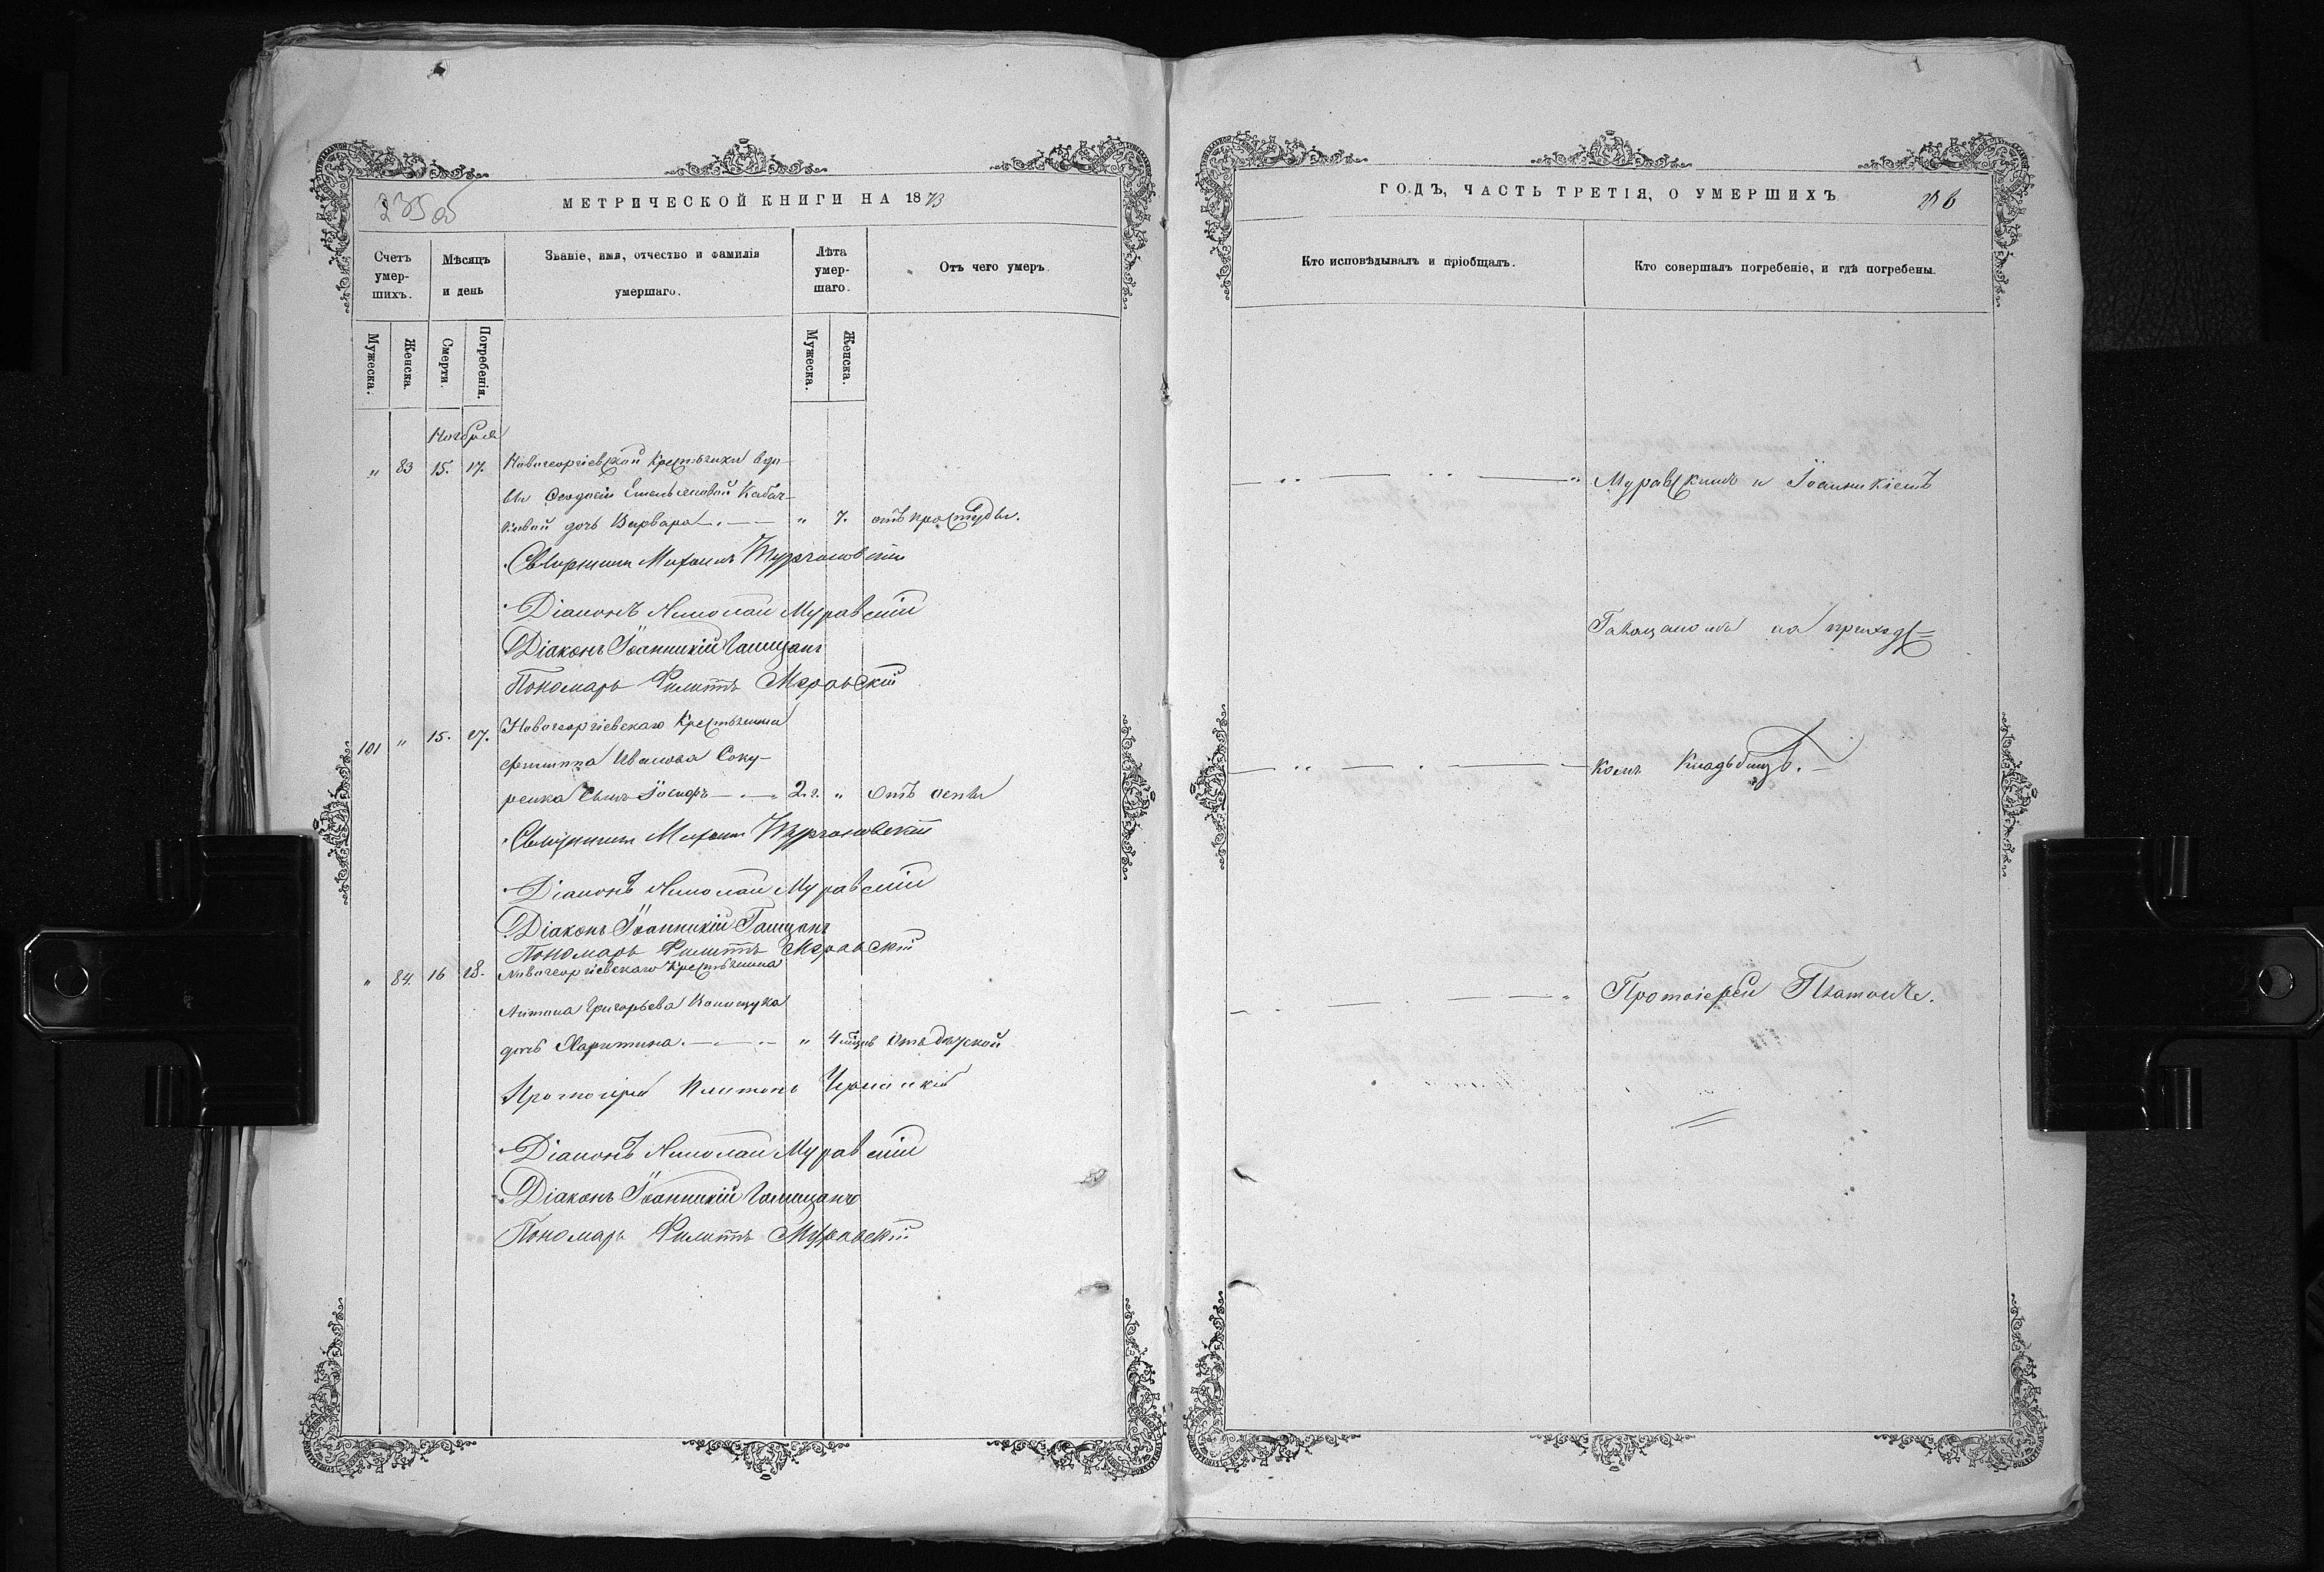 235 об
МЕТРИЧЕСКОЙ КНИГИ НА 1873
Счетъ умер-шихъ.
Мѣсяцъ и день
Званіе, имя, отчество и фамилія умершаго.
Лѣта умер-шаго.
Отъ чего умеръ.
Мужеска.
Женска.
Смерти.
Погребенія.
Мужеска.
Женска.
Ноября
" 83 15. 17. Новогеоргіевской крестьянки вдо-
вы Феодосіи Емельяновой
дочь Варвара " 7. отъ простуды.
Священникъ Михаилъ
Діаконъ Николай Муравскій
Діаконъ Іоанникій
Пономарь Филиппъ Муравскій
101 " 15. 27. Новогеоргіевскаго крестьянина
Филиппа Иванова Соку-
ренка сынъ Іосифъ 2. г. " Отъ оспы
Священникъ Михаилъ
Діаконъ Николай Муравскій
Діаконъ Іоанникій
Пономарь Филиппъ Муравскій
" 84. 16 28. Новогеоргіевскаго крестьянина
Антона Григорьева
дочь Харитина " 4 отъ
Протоіерей Платонъ
Діаконъ Николай Муравскій
Діаконъ Іоанникій
Пономарь Филиппъ Муравскій
ГОДЪ, ЧАСТЬ ТРЕТІЯ, О УМЕРШИХЪ
236
Кто исповѣдывалъ и пріобщалъ.
Кто совершалъ погребеніе, и гдѣ погребены.
Муравскимъ и Іоанникіемъ
на приходс=
комъ кладбищѣ.
Протоіерей Платонъ.